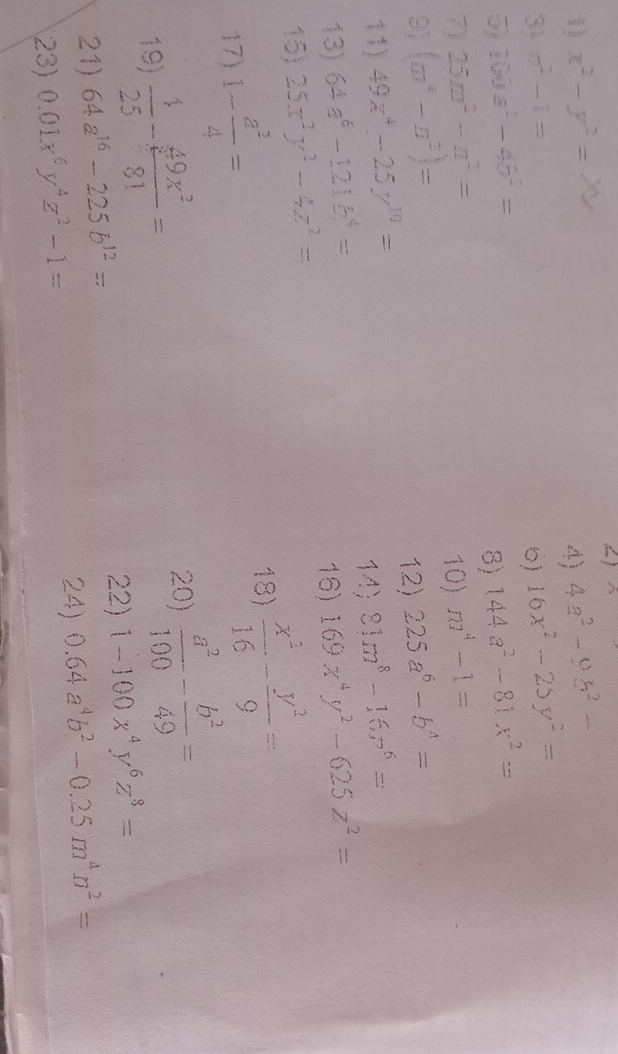 1) x² - y² =
3) n² - 1 = 4) 4a² - 9b² =
5) 100a² - 4b² = 6) 16x² - 25y² =
7) 25m² - n² = 8) 144a² - 81x² =
9) (m⁴ - n²) = 10) m⁴ - 1 =
11) 49x⁴ - 25y¹⁰ = 12) 225a⁶ - b⁴ =
13) 64a⁶ - 121b⁴ = 14) 81m⁸ - 16n⁶ =
15) 25x²y² - 4z² = 16) 169x⁴y² - 625z² =
17) 1 - a²/4 = 18) x²/16 - y²/9 =
19) 1/25 - 49x²/81 = 20) a²/100 - b²/49 =
21) 64a¹⁶ - 225b¹² = 22) 1 - 100x⁴y⁶z⁸ =
23) 0.01x⁶y⁴z² - 1 = 24) 0.64a⁴b² - 0.25m⁴n² =